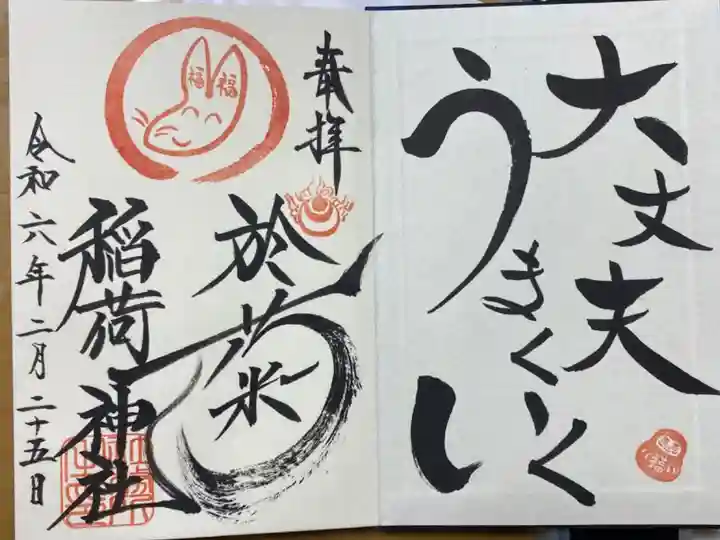 大丈夫
うまくいく
奉拝
於菊
稲荷神社
令和六年二月二十五日
福福